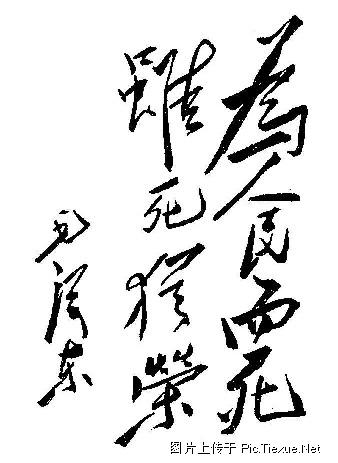 為人民而死
雖死猶榮
毛澤东
图片上传于 Pic.Tiexue.Net